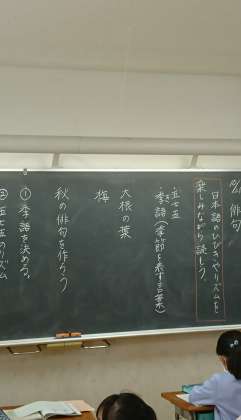 俳句
日本語のひびきやリズムを
楽しみながら読もう。
五七五
季語(季節を表す言葉)
大根の葉
梅
秋の俳句を作ろう
① 季語を決める。
② 五七五のリズム